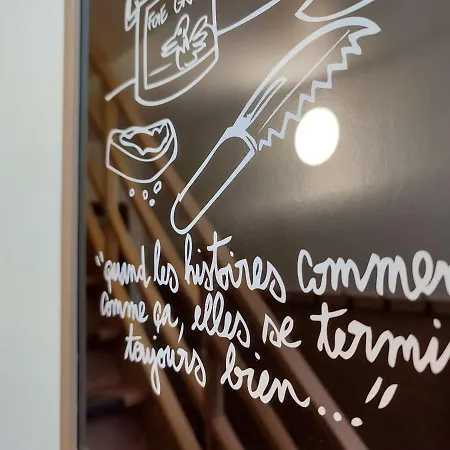 FOIE GR
"quand les histoires commen
comme ça, elles se termi
toujours bien..."